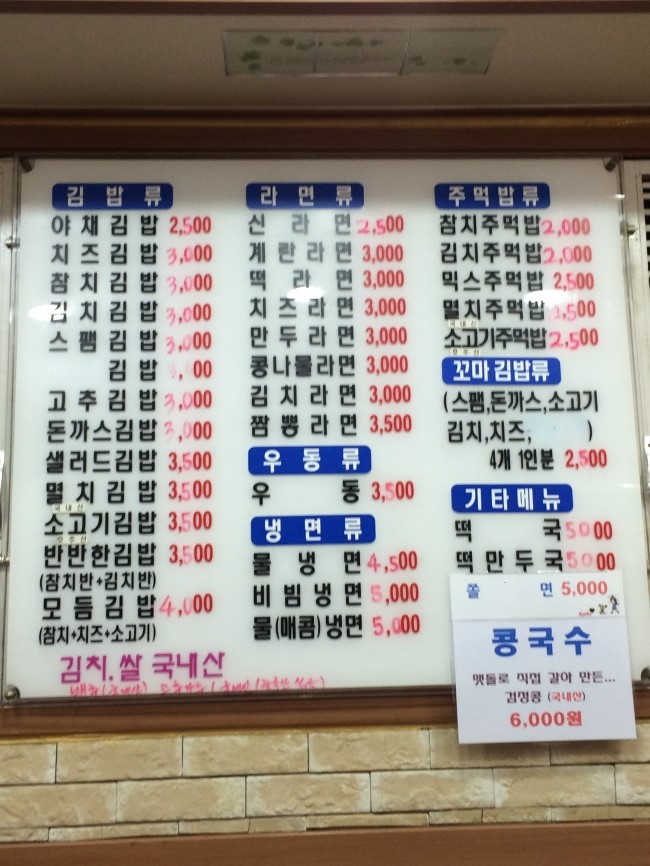 김밥류
야채김밥 2,500
치즈김밥 3,000
참치김밥 3,000
김치김밥 3,000
스팸김밥 3,000
김밥 3,000
고추김밥 3,000
돈까스김밥 3,000
샐러드김밥 3,500
멸치김밥 3,500
국내산
소고기김밥 3,500
호주산
반반한김밥 3,500
(참치반+김치반)
모듬김밥 4,000
(참치+치즈+소고기)
김치.쌀 국내산
라면류
신라면 2,500
계란라면 3,000
떡라면 3,000
치즈라면 3,000
만두라면 3,000
콩나물라면 3,000
김치라면 3,000
짬뽕라면 3,500
우동류
우동 3,500
냉면류
물냉면 4,500
비빔냉면 5,000
물(매콤)냉면 5,000
주먹밥류
참치주먹밥 2,000
김치주먹밥 2,000
믹스주먹밥 2,500
멸치주먹밥 2,500
국내산
소고기주먹밥 2,500
호주산
꼬마김밥류
(스팸,돈까스,소고기
김치,치즈, )
4개 1인분 2,500
기타메뉴
떡국 5000
떡만두국 5000
쫄면 5,000
콩국수
맷돌로 직접 갈아 만든...
검정콩 (국내산)
6,000원